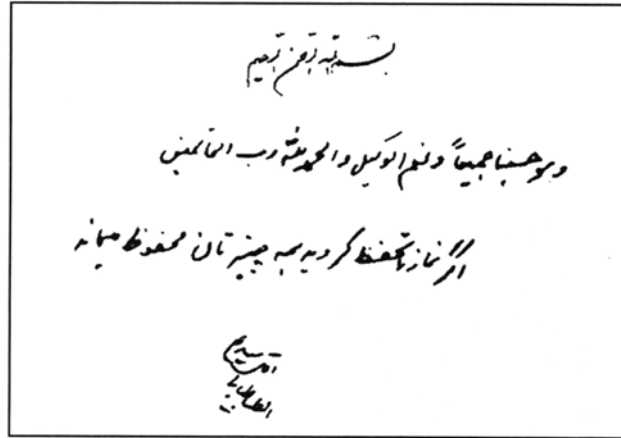 بسم الله الرحمن الرحیم
و هو حسبنا جمیعاً و نعم الوکیل و الحمد لله رب العالمین
اگر نماز را تحفظ کردید همه چیزتان محفوظ میماند
الاقل سید هاشم
الطباطبایی